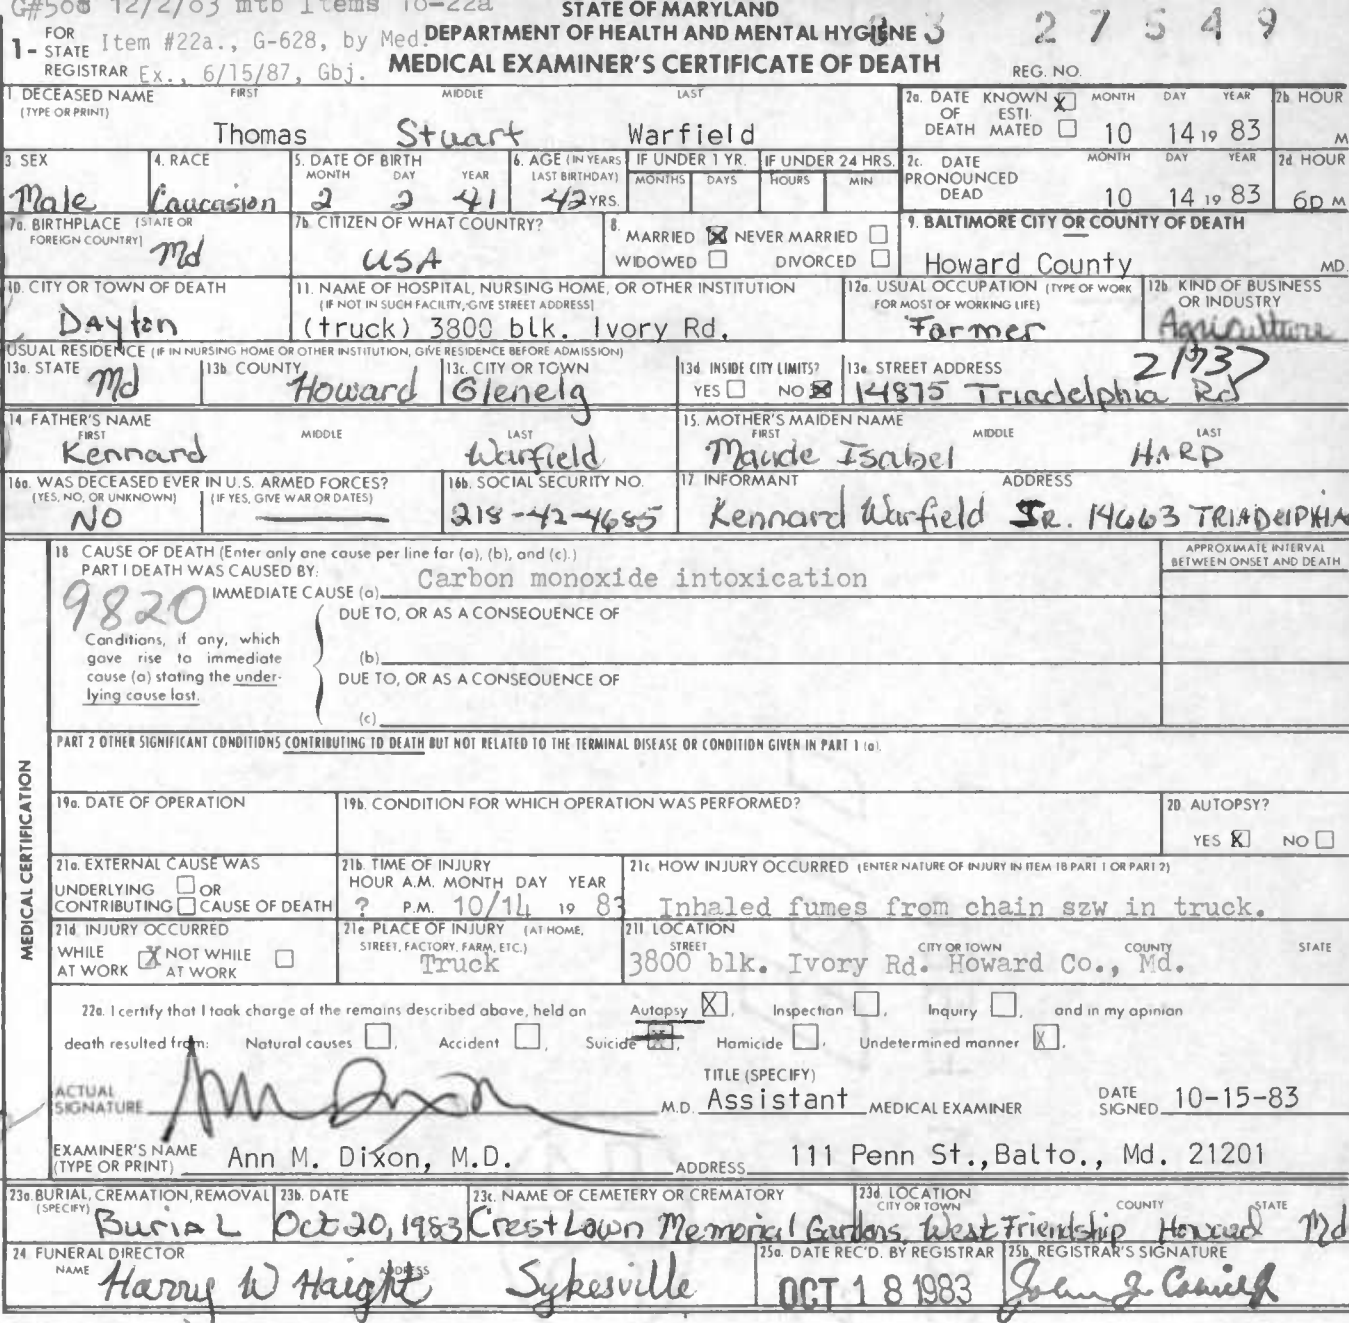 G#508 12/2/83 mtb Items 18-22a
STATE OF MARYLAND
DEPARTMENT OF HEALTH AND MENTAL HYGIENE
83 27549
1- FOR STATE REGISTRAR Item #22a., G-628, by Med. Ex., 6/15/87, Gbj.
MEDICAL EXAMINER'S CERTIFICATE OF DEATH
REG. NO.
1. DECEASED NAME (TYPE OR PRINT) FIRST MIDDLE LAST
Thomas Stuart Warfield
2a. DATE OF DEATH KNOWN X ESTIMATED MONTH DAY YEAR 2b. HOUR
10 14 19 83 M
3. SEX 4. RACE 5. DATE OF BIRTH MONTH DAY YEAR 6. AGE (IN YEARS LAST BIRTHDAY) IF UNDER 1 YR. MONTHS DAYS IF UNDER 24 HRS. HOURS MIN
Male Caucasion 2 2 41 42 YRS.
2c. DATE PRONOUNCED DEAD MONTH DAY YEAR 2d. HOUR
10 14 19 83 6p M
7a. BIRTHPLACE (STATE OR FOREIGN COUNTRY) Md
7b. CITIZEN OF WHAT COUNTRY? USA
8. MARRIED X NEVER MARRIED WIDOWED DIVORCED
9. BALTIMORE CITY OR COUNTY OF DEATH
Howard County MD.
10. CITY OR TOWN OF DEATH
Dayton
11. NAME OF HOSPITAL, NURSING HOME, OR OTHER INSTITUTION (IF NOT IN SUCH FACILITY, GIVE STREET ADDRESS)
(truck) 3800 blk. Ivory Rd.
12a. USUAL OCCUPATION (TYPE OF WORK FOR MOST OF WORKING LIFE)
Farmer
12b. KIND OF BUSINESS OR INDUSTRY
Agriculture
USUAL RESIDENCE (IF IN NURSING HOME OR OTHER INSTITUTION, GIVE RESIDENCE BEFORE ADMISSION)
13a. STATE Md
13b. COUNTY Howard
13c. CITY OR TOWN Glenelg
13d. INSIDE CITY LIMITS? YES NO X
13e. STREET ADDRESS 21737
14875 Triadelphia Rd
14. FATHER'S NAME FIRST MIDDLE LAST
Kennard Warfield
15. MOTHER'S MAIDEN NAME FIRST MIDDLE LAST
Maude Isabel HARP
16a. WAS DECEASED EVER IN U.S. ARMED FORCES? (YES, NO, OR UNKNOWN) (IF YES, GIVE WAR OR DATES)
NO
16b. SOCIAL SECURITY NO.
218-42-4685
17. INFORMANT ADDRESS
Kennard Warfield JR. 14663 TRIADELPHIA
18. CAUSE OF DEATH (Enter only one cause per line for (a), (b), and (c).)
APPROXIMATE INTERVAL BETWEEN ONSET AND DEATH
PART I DEATH WAS CAUSED BY:
IMMEDIATE CAUSE (a) Carbon monoxide intoxication
9820
DUE TO, OR AS A CONSEQUENCE OF
Conditions, if any, which gave rise to immediate cause (a) stating the underlying cause last.
(b)
DUE TO, OR AS A CONSEQUENCE OF
(c)
PART 2 OTHER SIGNIFICANT CONDITIONS CONTRIBUTING TO DEATH BUT NOT RELATED TO THE TERMINAL DISEASE OR CONDITION GIVEN IN PART 1 (a).
MEDICAL CERTIFICATION
19a. DATE OF OPERATION
19b. CONDITION FOR WHICH OPERATION WAS PERFORMED?
20. AUTOPSY?
YES X NO
21a. EXTERNAL CAUSE WAS
UNDERLYING OR CONTRIBUTING CAUSE OF DEATH
21b. TIME OF INJURY
HOUR A.M. MONTH DAY YEAR
? P.M. 10/14 19 83
21c. HOW INJURY OCCURRED (ENTER NATURE OF INJURY IN ITEM 18 PART 1 OR PART 2)
Inhaled fumes from chain szw in truck.
21d. INJURY OCCURRED
WHILE AT WORK X NOT WHILE AT WORK
21e. PLACE OF INJURY (AT HOME, STREET, FACTORY, FARM, ETC.)
Truck
21f. LOCATION
STREET CITY OR TOWN COUNTY STATE
3800 blk. Ivory Rd. Howard Co., Md.
22a. I certify that I took charge of the remains described above, held an Autopsy X, Inspection , Inquiry , and in my opinion
death resulted from: Natural causes , Accident , Suicide X, Homicide , Undetermined manner X.
ACTUAL SIGNATURE Ann Dixon M.D.
TITLE (SPECIFY) Assistant MEDICAL EXAMINER
DATE SIGNED 10-15-83
EXAMINER'S NAME (TYPE OR PRINT) Ann M. Dixon, M.D.
ADDRESS 111 Penn St.,Balto., Md. 21201
23a. BURIAL, CREMATION, REMOVAL (SPECIFY) Burial
23b. DATE Oct 20, 1983
23c. NAME OF CEMETERY OR CREMATORY
Crest Lawn Memorial Gardens
23d. LOCATION CITY OR TOWN COUNTY STATE
West Friendship Howard Md
24. FUNERAL DIRECTOR
NAME ADDRESS
Harry W Haight Sykesville
25a. DATE REC'D. BY REGISTRAR
OCT 18 1983
25b. REGISTRAR'S SIGNATURE
John J.